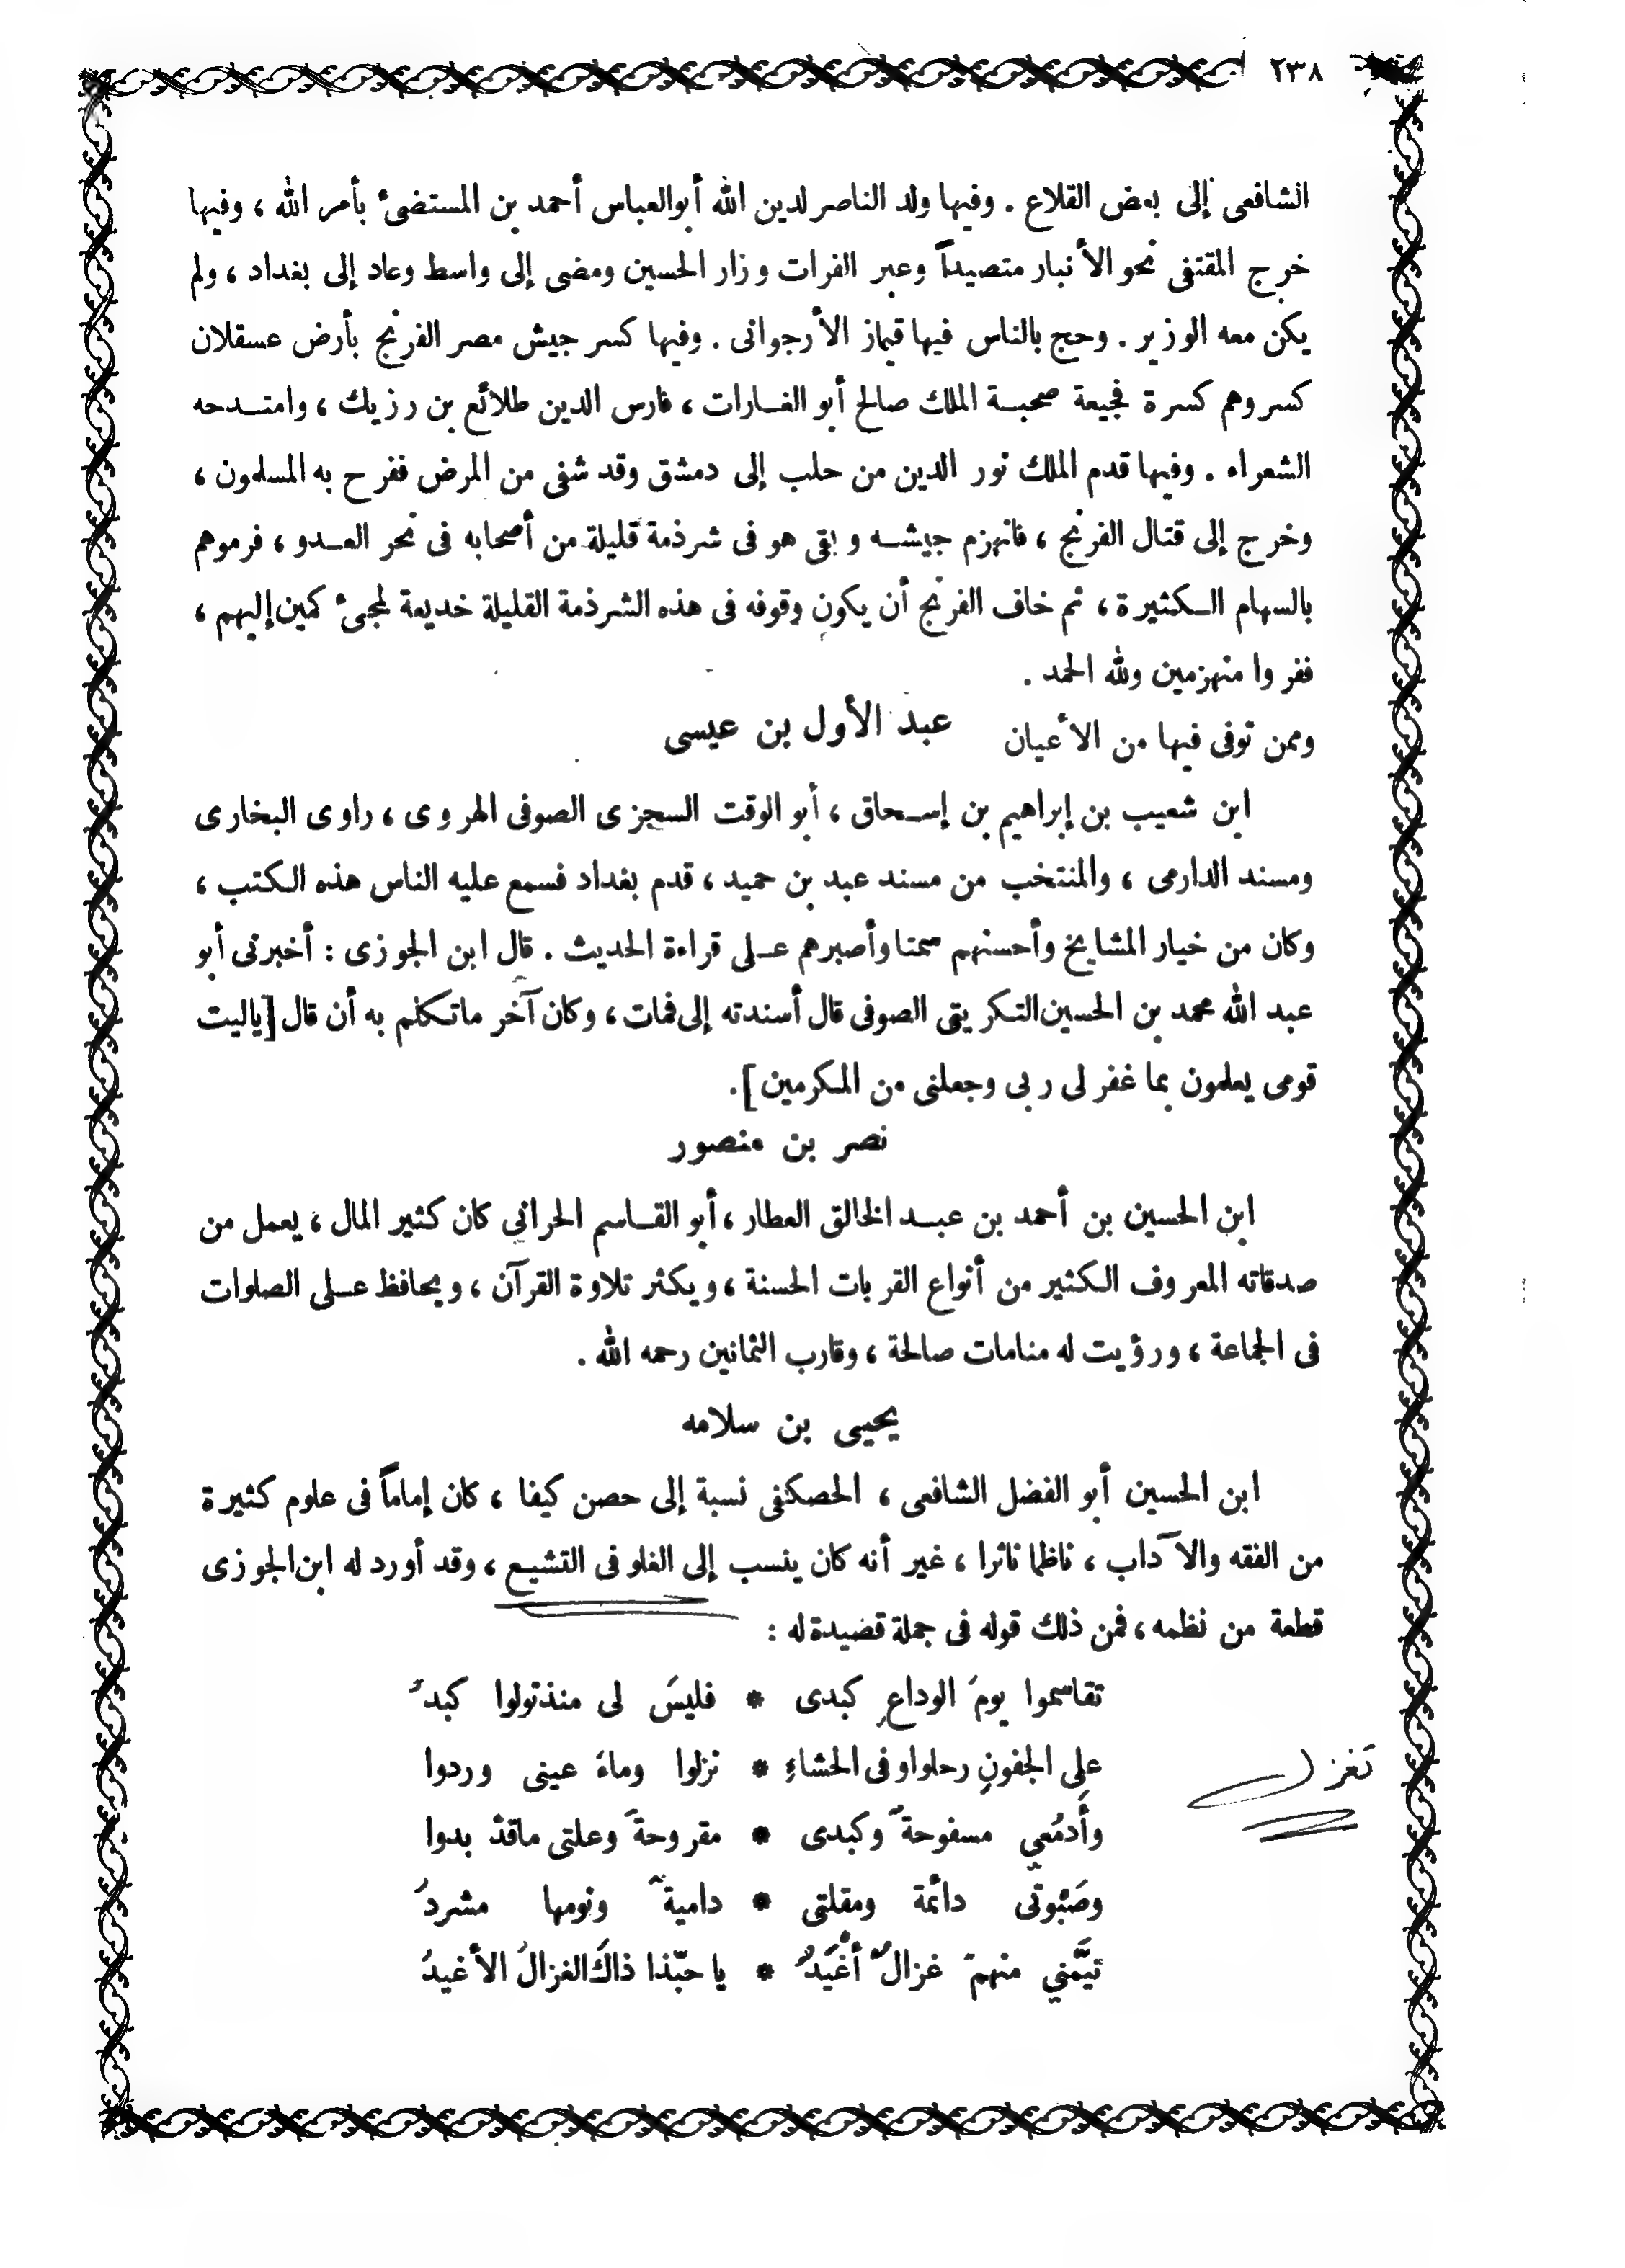 ٢٣٨
الشافعى إلى بعض القلاع . وفيها ولد الناصر لدين الله أبو العباس أحمد بن المستضئ بأمر الله ، وفيها
خرج المقتفى نحو الأنبار متصيداً وعبر الفرات وزار الحسين ومضى إلى واسط وعاد إلى بغداد ، ولم
يكن معه الوزير . وحج بالناس فيها قيماز الأرجوانى . وفيها كسر جيش مصر الفرنج بأرض عسقلان
كسروهم كسرة فجيعة صحبة الملك صالح أبو الغارات ، فارس الدين طلائع بن رزيك ، وامتدحه
الشعراء . وفيها قدم الملك نور الدين من حلب إلى دمشق وقد شفى من المرض ففرح به المسلمون ،
وخرج إلى قتال الفرنج ، فانهزم جيشه وبقى هو فى شرذمة قليلة من أصحابه فى نحر العدو ، فرموهم
بالسهام الكثيرة ، ثم خاف الفرنج أن يكون وقوفه فى هذه الشرذمة القليلة خديعة لمجئ كمين إليهم ،
ففروا منهزمين ولله الحمد .
وممن توفى فيها من الأعيان عبد الأول بن عيسى
ابن شعيب بن إبراهيم بن إسحاق ، أبو الوقت السجزى الصوفى الهروى ، راوى البخارى
ومسند الدارمى ، والمنتخب من مسند عبد بن حميد ، قدم بغداد فسمع عليه الناس هذه الكتب ،
وكان من خيار المشايخ وأحسنهم سمتا وأصبرهم على قراءة الحديث . قال ابن الجوزى : أخبرنى أبو
عبد الله محمد بن الحسين التكريتى الصوفى قال أسندته إلى فمات ، وكان آخر ما تكلم به أن قال [ياليت
قومى يعلمون بما غفر لى ربى وجعلنى من المكرمين].
نصر بن منصور
ابن الحسين بن أحمد بن عبد الخالق العطار ، أبو القاسم الحرانى كان كثير المال ، يعمل من
صدقاته المعروف الكثير من أنواع القربات الحسنة ، ويكثر تلاوة القرآن ، ويحافظ على الصلوات
فى الجماعة ، ورؤيت له منامات صالحة ، وقارب الثمانين رحمه الله .
يحيى بن سلامه
ابن الحسين أبو الفضل الشافعى ، الحصكفى نسبة إلى حصن كيفا ، كان إماماً فى علوم كثيرة
من الفقه والآداب ، ناظما ناثرا ، غير أنه كان ينسب إلى الغلو فى التشيع ، وقد أورد له ابن الجوزى
قطعة من نظمه ، فمن ذلك قوله فى جملة قصيدة له :
تقاسموا يومَ الوداعِ كبدى * فليسَ لى منذ تولوا كبدُ
على الجفونِ رحلوا وفى الحشاءِ * نزلوا وماءَ عينى وردوا
تغزل
وأدمُعي مسفوحةٌ وكبدى * مقروحةٌ وعلتى ماقدْ بدوا
وصَبْوتى دائمة ومقلتى * داميةٌ ونومها مشردُ
تيَّمني منهمْ غزالٌ أغْيَدٌ * يا حبّذا ذاكَ الغزالُ الأغيدُ